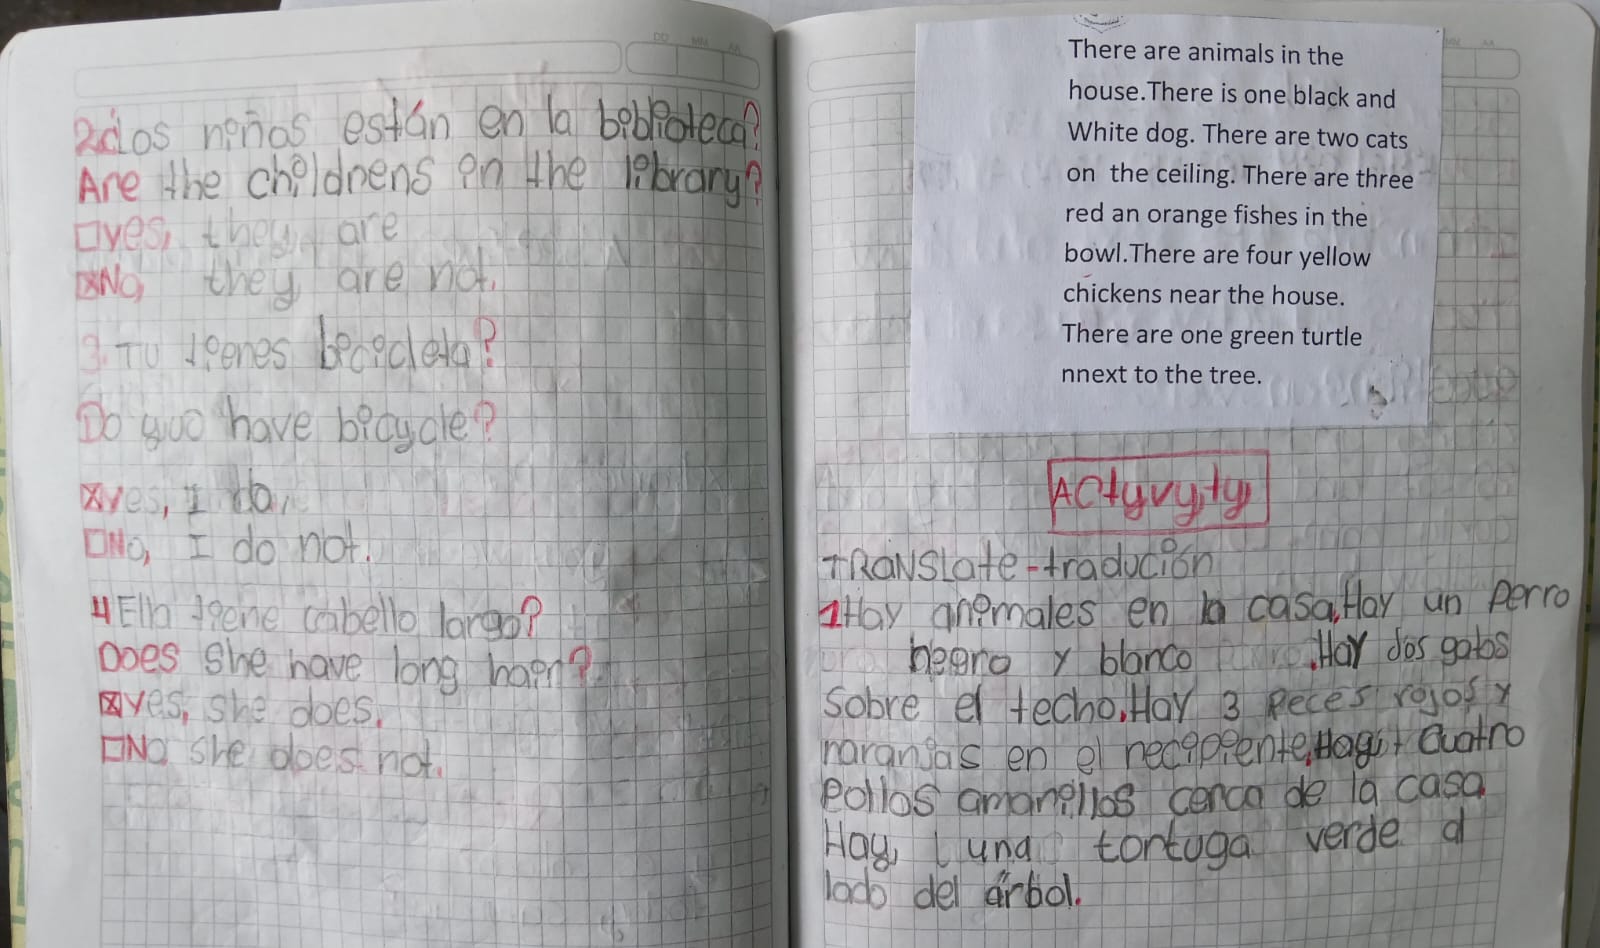 2¿los niños están en la biblioteca?
Are the childrens in the library?
yes, they are
No, they are not.
3. TU tienes bicicleta?
Do yuo have bicycle?
yes, I do,
No, I do not.
4 Ella tiene cabello largo?
Does she have long hair?
yes, she does.
No she does not.
There are animals in the
house.There is one black and
White dog. There are two cats
on the ceiling. There are three
red an orange fishes in the
bowl.There are four yellow
chickens near the house.
There are one green turtle
nnext to the tree.
ACtyvyty
TRANSlate-tradución
1Hay animales en la casa.Hay un Perro
negro y blanco .Hay dos gatos
Sobre el techo.Hay 3 Peces rojos y
naranjas en el recipiente. cuatro
Pollos amarillos cerca de la casa
Hay, una tortuga verde al
lado del árbol.